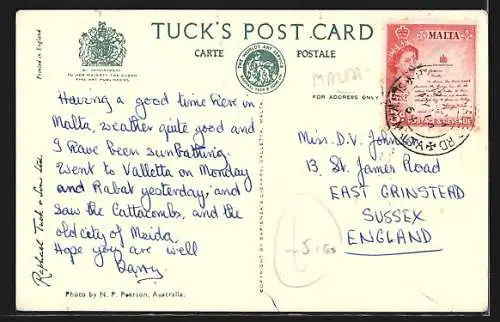 TUCK'S POST CARD
CARTE POSTALE
Printed in England
BY APPOINTMENT
TO HER MAJESTY THE QUEEN
FINE ART PUBLISHERS
THE WORLD'S ART SERVICE
MALTA
FOR ADDRESS ONLY
MALTA
POSTAGE & REVENUE
Having a good time here in
Malta, weather quite good and
I have been sunbathing.
Went to Valletta on Monday
and Rabat yesterday, and
saw the Cattacombs, and the
old city of Mdida.
Hope you are well
Barry
Miss. D.V. Johnson
13, St. James Road
EAST GRINSTEAD
SUSSEX
ENGLAND
Raphael Tuck & Sons Ltd.
COPYRIGHT BY SAPIENZA'S LIBRARY, VALLETTA, MALTA
Photo by N. P. Pearson, Australia.